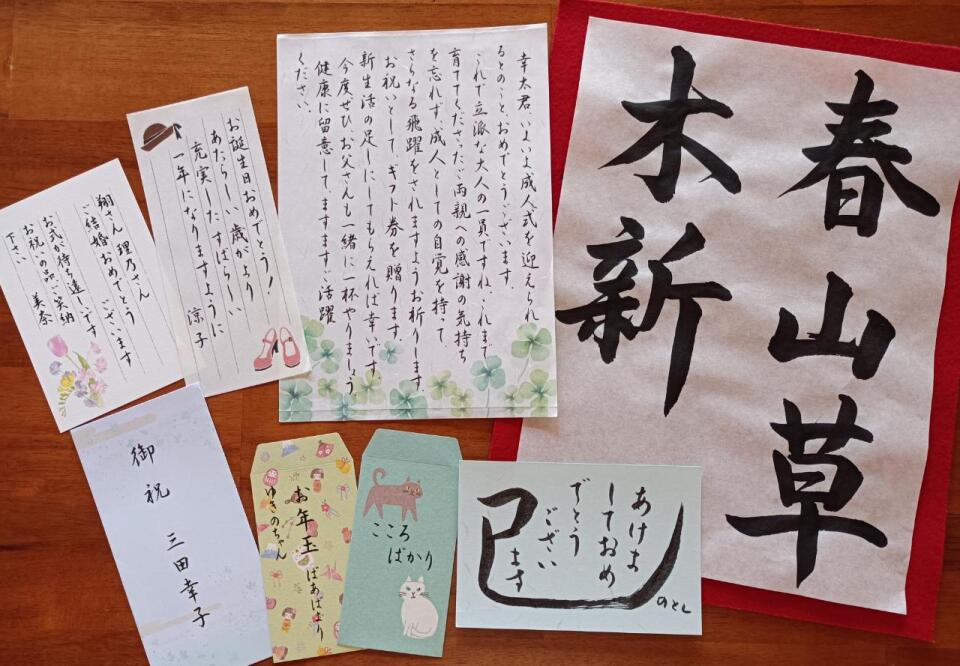 春山草
木新
幸太君、いよいよ成人式を迎えられ
るとのこと、おめでとうございます。
これで立派な大人の一員ですね、これまで
育ててくださったご両親への感謝の気持ち
を忘れず、成人としての自覚を持って、
さらなる飛躍をされますようお祈りします。
お祝いとして、ギフト券を贈ります。
新生活の足しにしてもらえれば幸いです
今度ぜひ、お父さんも一緒に一杯やりましょう
健康に留意して、ますますご活躍
ください。
お誕生日おめでとう！
あたらしい歳がより
充実したすばらしい
一年になりますように
涼子
翔さん 理乃さん
ご結婚おめでとう
ございます
お式が待ち遠しいです
お祝いの品、ご笑納
下さい 美奈
御祝 三田幸子
お年玉 ばあばより
ゆきのちゃん
こころ
ばかり
あけま
しておめ
でとう
ござい
ます
巳
のとし